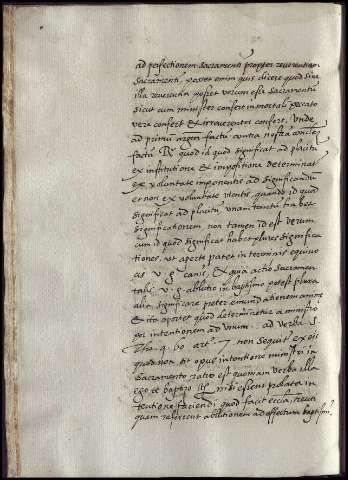 ad perfectionem sacramenti propter reuerentiam
sacramenti, posset enim quis dicere quod sine
illa reuerentia posset verum esse sacramentū
sicut cum minister confert in mortali peccato
vere confert & irreuerenter confert. Unde
ad primū argm factū contra nostrā concl
factū Rr quod id quod significat ad placitū
ex institutione et impositione determinat
ex voluntate imponentis ad significandū
et non ex voluntate vtentis, quando id quod
significat ad placitū, vnam tantū habet
significationem non tamen id est verum
cum id quod significat habet plures significa
tiones, vt aperte patet in terminis equiuo
cis v. g. canis, & quia actio sacramen
talis v. g. ablutio in baptismo potest plura
alia significare preter emundationem anime
& ita oportet quod determinetur a ministro
per intentionem ad vnum. ad verba S.
Tho. q. 60 artº. 7. non sequitur ex eis
quod non sit opus intentione ministri in
sacramento ratio est quoniam verba illa
ego te baptizo nisi essent prolata in
tentione faciendi quod facit ecclia, neuti
quam referrent ablutionem ad effectum baptismi